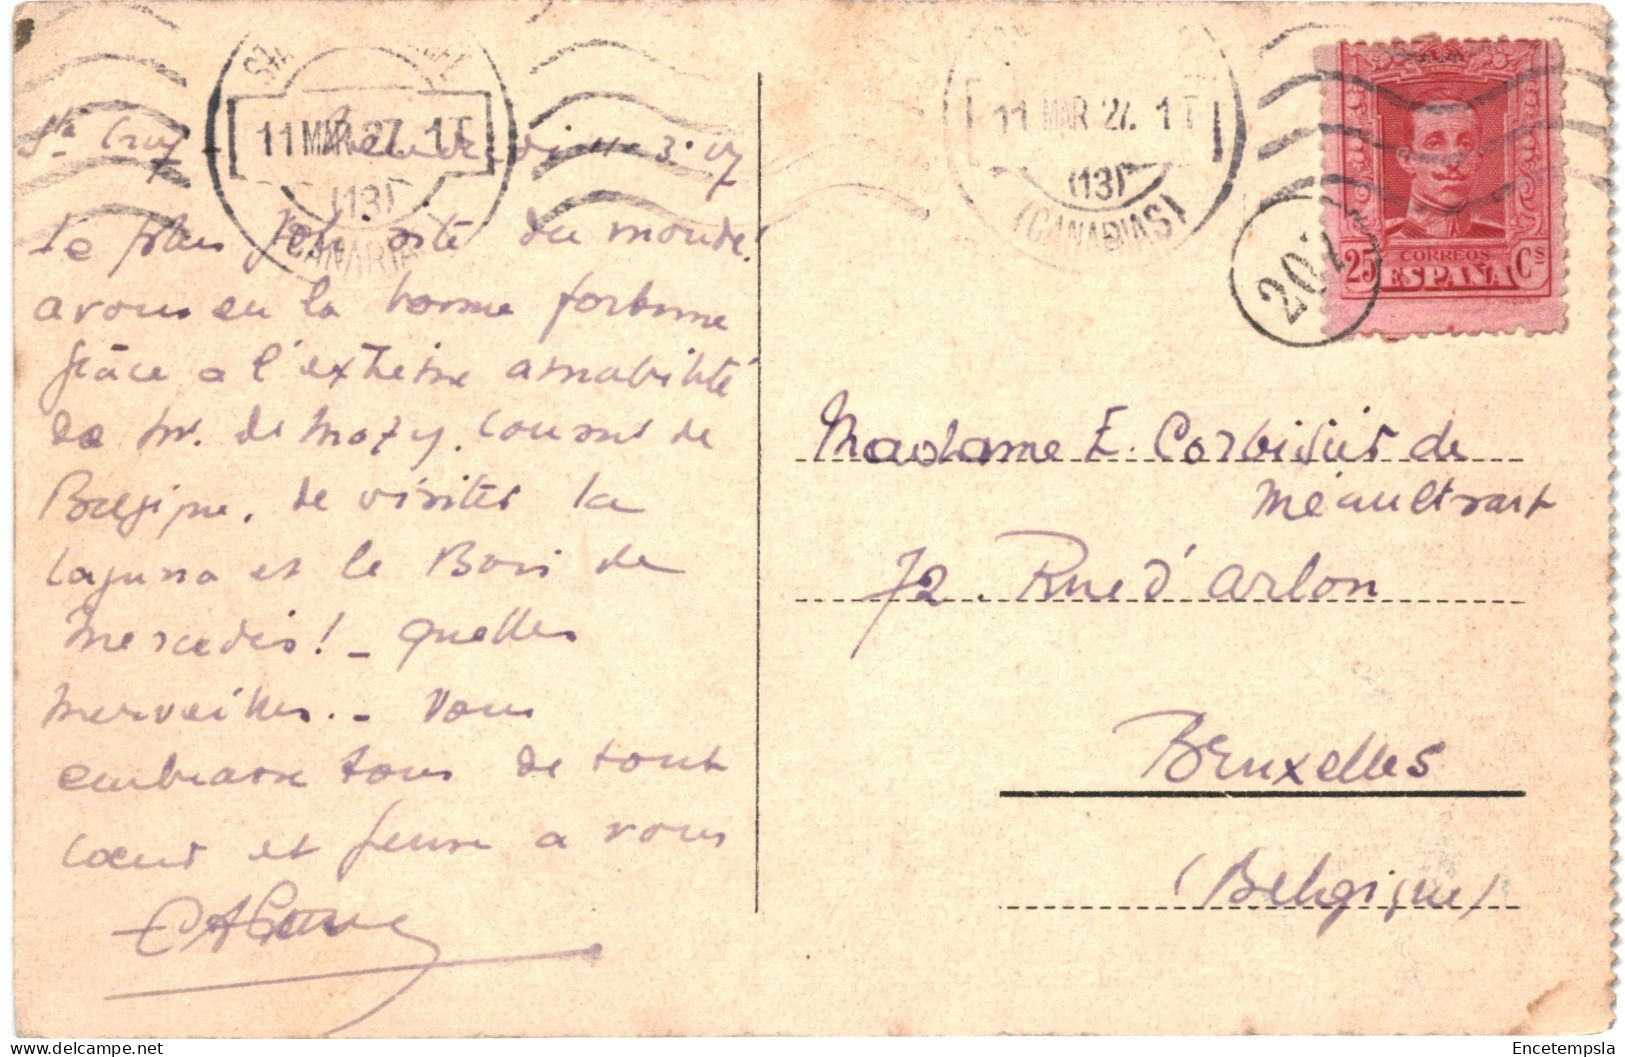 Sta Cruz - Vendredi 11-3-27
Le plus joli site du monde!
avons eu la bonne fortune
grâce a l'extreme amabilité
de Mr. de Mozy. Consul de
Belgique. de visiter la
Laguna et le Bois de
Mercedes! - Quelles
merveilles. - Vous
embrasse tous de tout
coeur et pense a vous
11 MAR. 27. 1T
(13)
(CANARIAS)
11 MAR. 27. 1T
(13)
(CANARIAS)
207
25 CORREOS Cs
ESPAÑA
Madame E. Corbisier de
Méaultsart
72. Rue d'Arlon
Bruxelles
(Belgique)
Encetempsla